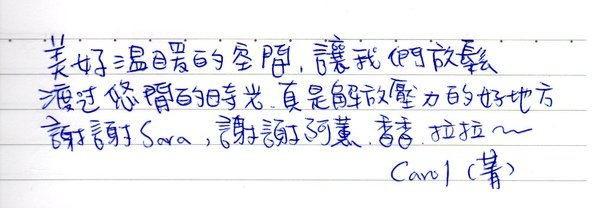 美好溫暖的空間，讓我們放鬆
渡过悠閒的時光.真是解放壓力的好地方
謝謝Sara，謝謝阿薰.香香.拉拉～
Carol（菁）